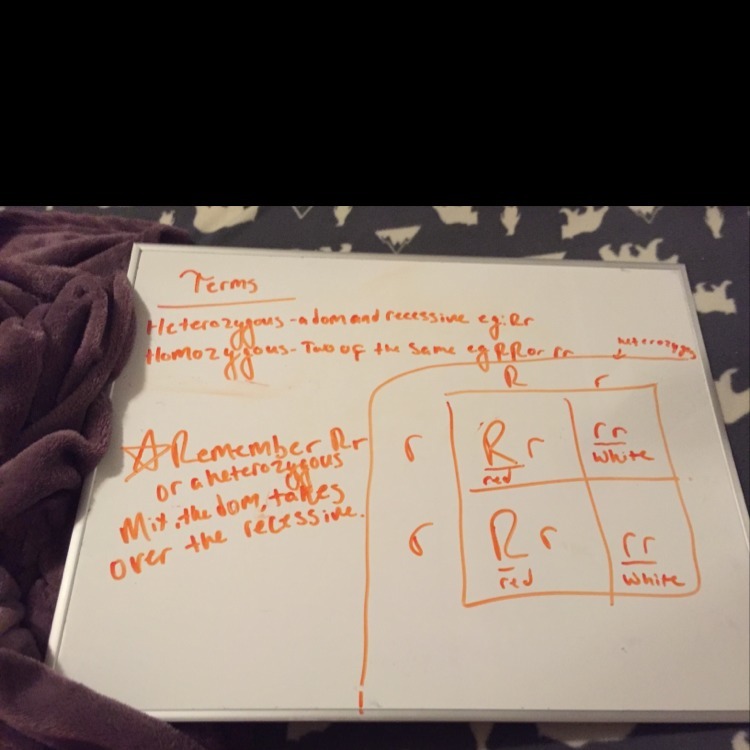 Terms
Heterozygous - a dom and recessive eg: Rr
Homozygous - Two of the same eg RR or rr
☆ Remember Rr
or a heterozygous
Mix, the dom, takes
over the recessive.
R r
r Rr rr
red white
r Rr rr
red white